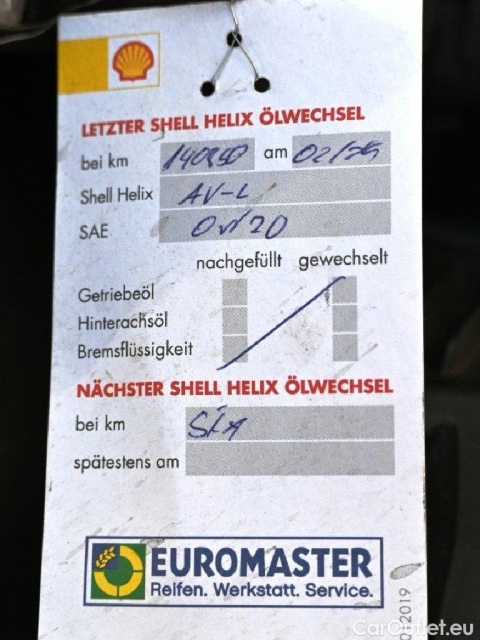 LETZTER SHELL HELIX ÖLWECHSEL
bei km am
Shell Helix AV-L
SAE 0W20
nachgefüllt gewechselt
Getriebeöl
Hinterachsöl
Bremsflüssigkeit
NÄCHSTER SHELL HELIX ÖLWECHSEL
bei km
spätestens am
EUROMASTER
Reifen. Werkstatt. Service.
2019
CarOutlet.eu